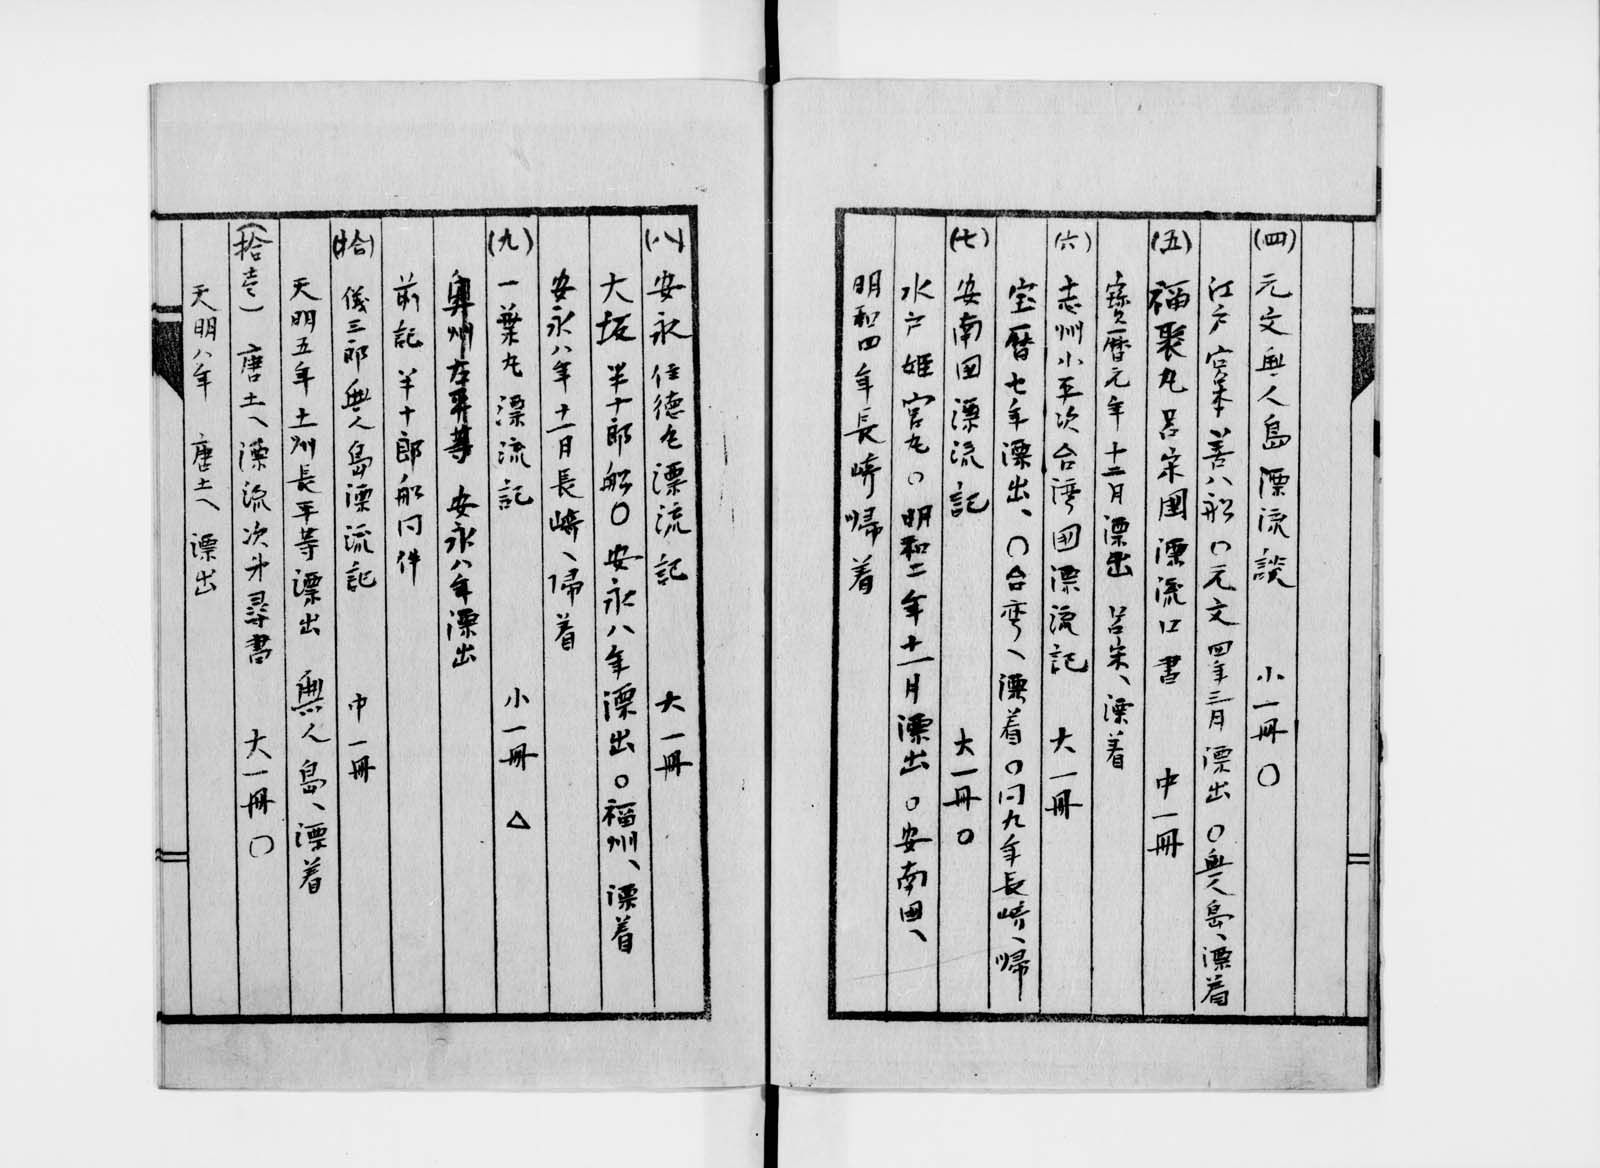 (四) 元文無人島漂流談 小一冊 〇
江戸宮本善八船〇元文四年三月漂出〇無人島、漂着
(五) 福聚丸呂宋国漂流口書 中一冊
寳暦元年十二月漂出 呂宋、漂着
(六) 志州小平次台湾国漂流記 大一冊
宝暦七年漂出、〇台湾へ漂着〇同九年長崎、帰
(七) 安南国漂流記 大一冊〇
水戸姫宮丸〇明和二年十一月漂出〇安南国、
明和四年長崎帰着
(八) 安永住徳丸漂流記 大一冊
大坂半十郎船〇安永八年漂出〇福州、漂着
安永八年十一月長崎、帰着
(九) 一葉丸漂流記 小一冊 △
奥州 等 安永八年漂出
前記半十郎船同件
(拾) 儀三郎無人島漂流記 中一冊
天明五年土州長平等漂出 無人島、漂着
(拾壱) 唐土へ漂流次第尋書 大一冊〇
天明八年 唐土へ漂出